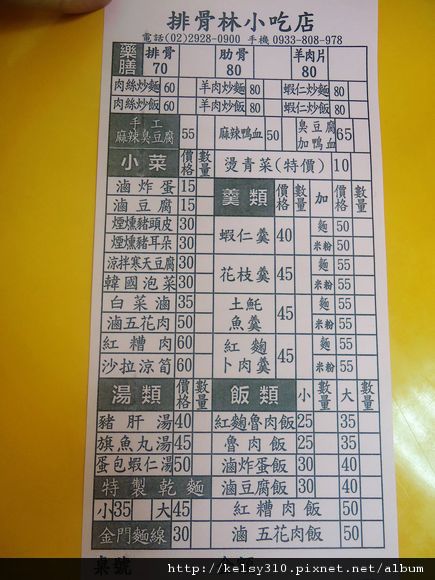 排骨林小吃店
電話(02)2928-0900 手機 0933-808-978
藥膳 排骨 70 肋骨 80 羊肉片 80
肉絲炒麵 60 羊肉炒麵 80 蝦仁炒麵 80
肉絲炒飯 60 羊肉炒飯 80 蝦仁炒飯 80
手工麻辣臭豆腐 55 麻辣鴨血 50 臭豆腐加鴨血 65
小菜 價格 數量 燙青菜(特價) 10
滷炸蛋 15 羹類 價格 數量 加 價格 數量
滷豆腐 15
煙燻豬頭皮 30 蝦仁羹 40 麵 50
煙燻豬耳朵 30 米粉 50
涼拌寒天豆腐 30 花枝羹 45 麵 55
韓國泡菜 30 米粉 55
白菜滷 35 土魠魚羹 45 麵 55
滷五花肉 50 米粉 55
紅糟肉 60 紅麴卜肉羹 45 麵 55
沙拉涼筍 60 米粉 55
湯類 價格 數量 飯類 小 數量 大 數量
豬肝湯 40 紅麴魯肉飯 25 35
旗魚丸湯 45 魯肉飯 25 35
蛋包蝦仁湯 50 滷炸蛋飯 30 40
特製乾麵 滷豆腐飯 30 40
小 35 大 45 紅糟肉飯 50
金門麵線 30 滷五花肉飯 50
桌號
http://kelsy310.pixnet.net/album